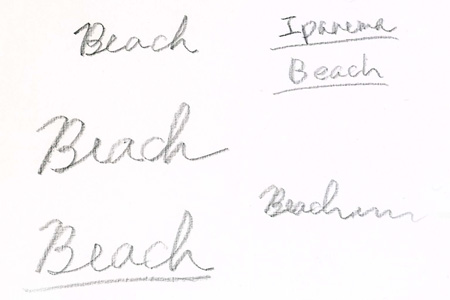 Beach
Beach
Beach
Ipanema
Beach
Beach